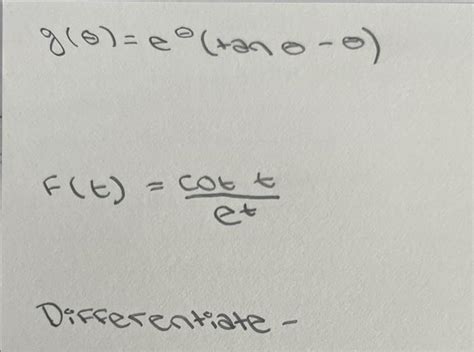 g(θ) = e^θ (tan θ - θ)
F(t) = cot t / e^t
Differentiate -